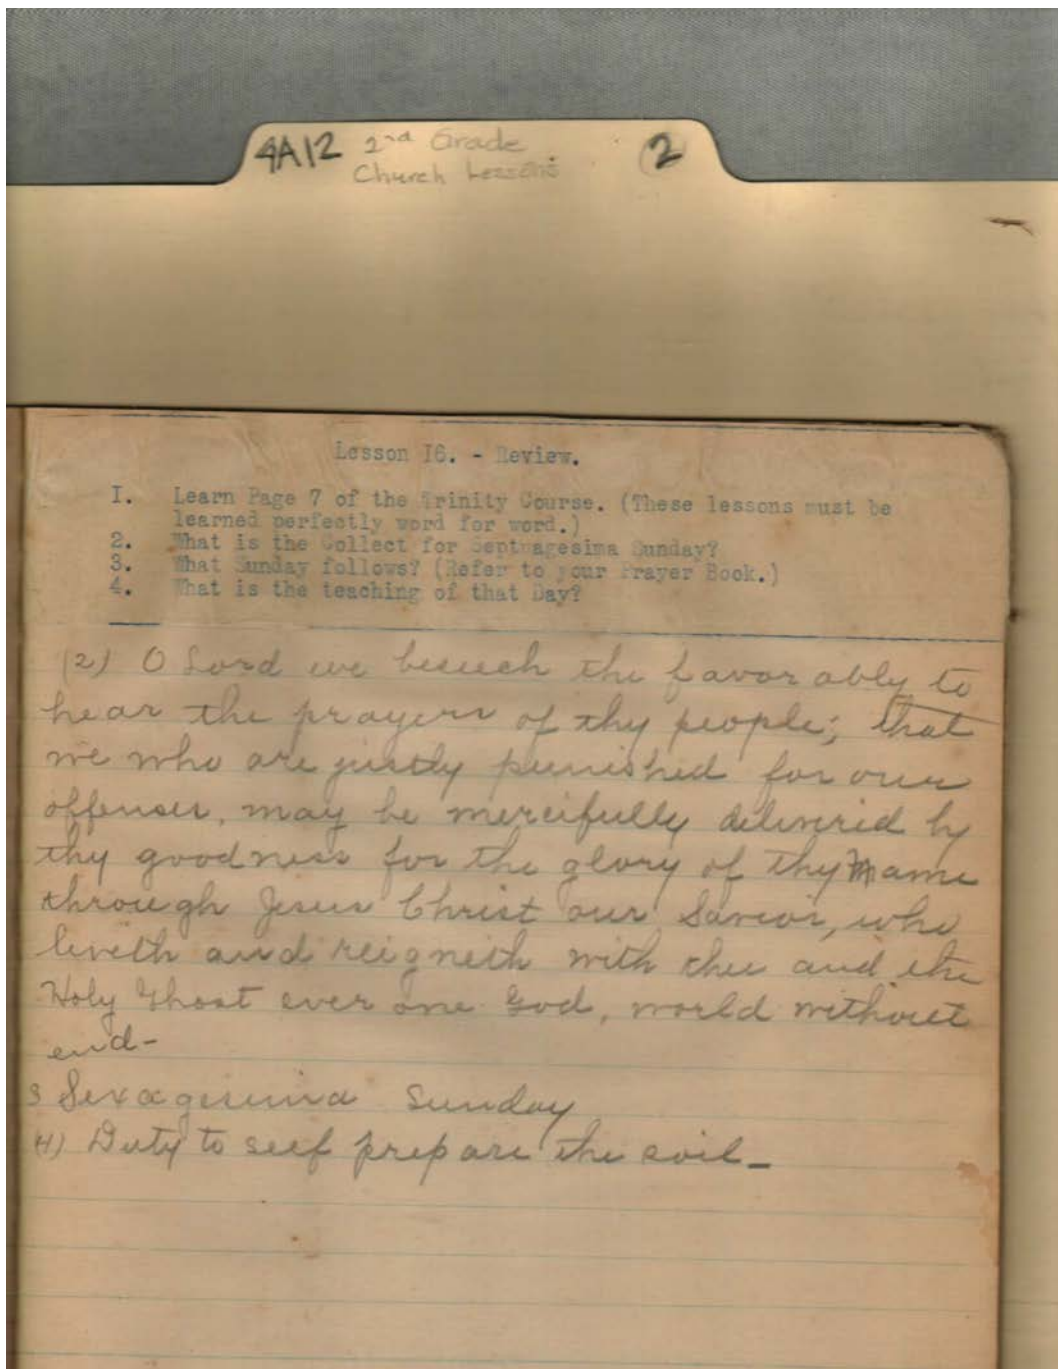 4A12 2nd Grade (2)
Church Lessons
Lesson I6. - Review.
I. Learn Page 7 of the Trinity Course. (These lessons must be
learned perfectly word for word.)
2. What is the Collect for Septuagesima Sunday?
3. What Sunday follows? (Refer to your Prayer Book.)
4. What is the teaching of that Day?
(2) O Lord we beseech the favorably to
hear the prayers of thy people; that
we who are justly punished for our
offenses, may be mercifully delivered by
thy goodness for the glory of thy Name
through Jesus Christ our Savior, who
liveth and reigneth with thee and the
Holy Ghost ever one God, world without
end-
3 Sexagesima Sunday
(4) Duty to self prepare the soil_